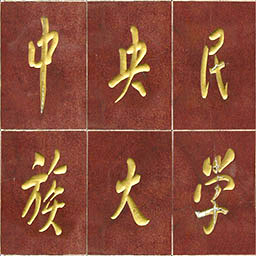 中央民
族大学